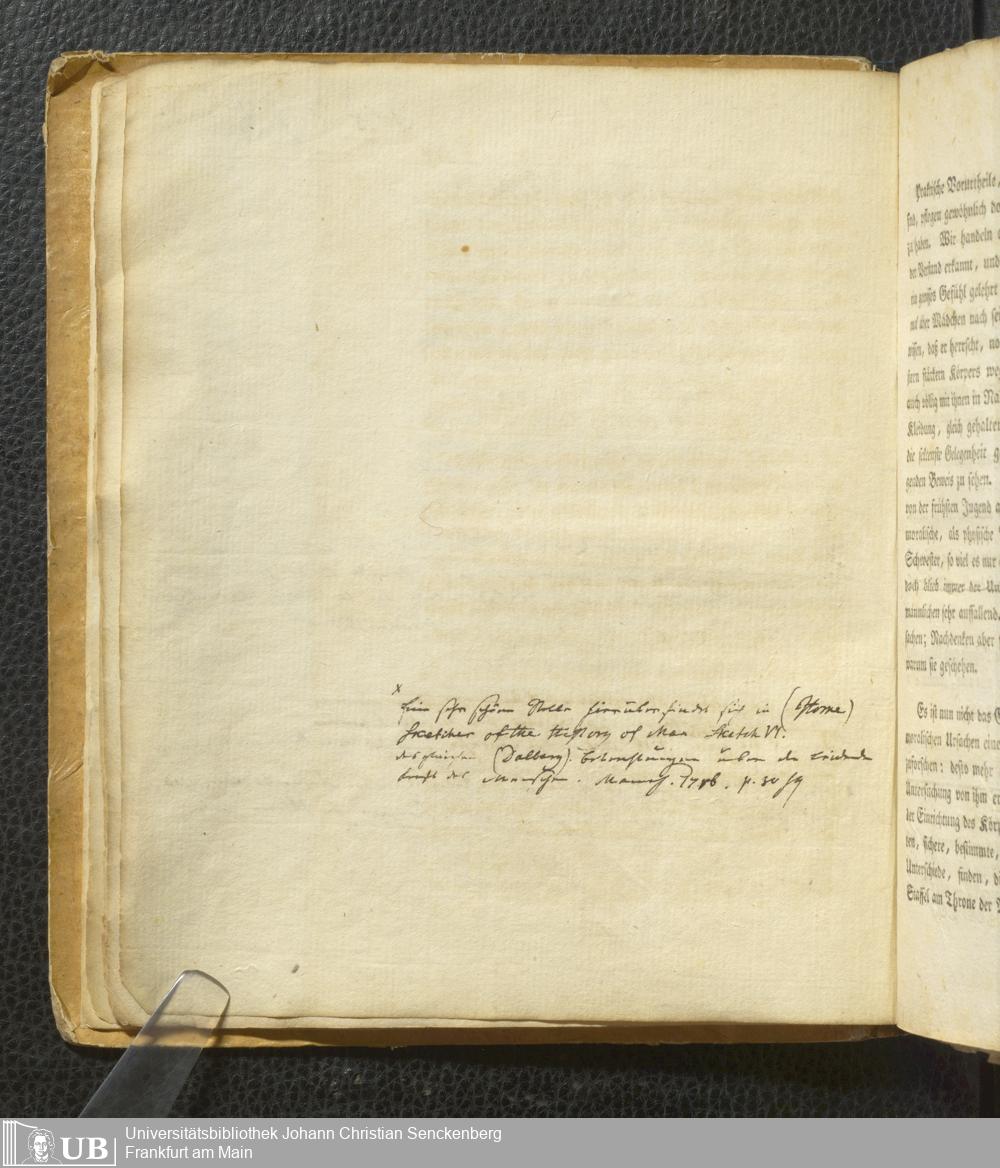 x
Eine sehr schöne Stelle hierüber findet sich in (Home)
Sketches of the History of Man Sketch VI.
desgleichen (Dalberg). Betrachtungen über die
Kraft des Menschen. Mannh. 1786. p. 30 sq
Praktische Vorurtheile,
sind, pflegen gewöhnlich
zu haben. Wir handeln
der Verstand erkannt, und
ein gewisses Gefühl gelehrt
Mädchen nach
wissen, daß er herrscht,
stärkern Körpers
auch völlig mit ihnen in
Kleidung, gleich gehalten
die seltenste Gelegenheit
genden Beweis zu sehen.
von der frühsten Jugend
moralische, als physische
Schwester, so viel es nur
doch blieb immer der
männlichen sehr auffallend.
sachen; Nachdenken aber
warum sie geschehen.
Es ist nun nicht das
moralischen Ursachen
zuforschen: desto mehr
Untersuchung von ihm
der Einrichtung des
ten, sichere, bestimmte,
Unterschiede, finden,
Staffel am Throne der
UB
Universitätsbibliothek Johann Christian Senckenberg
Frankfurt am Main